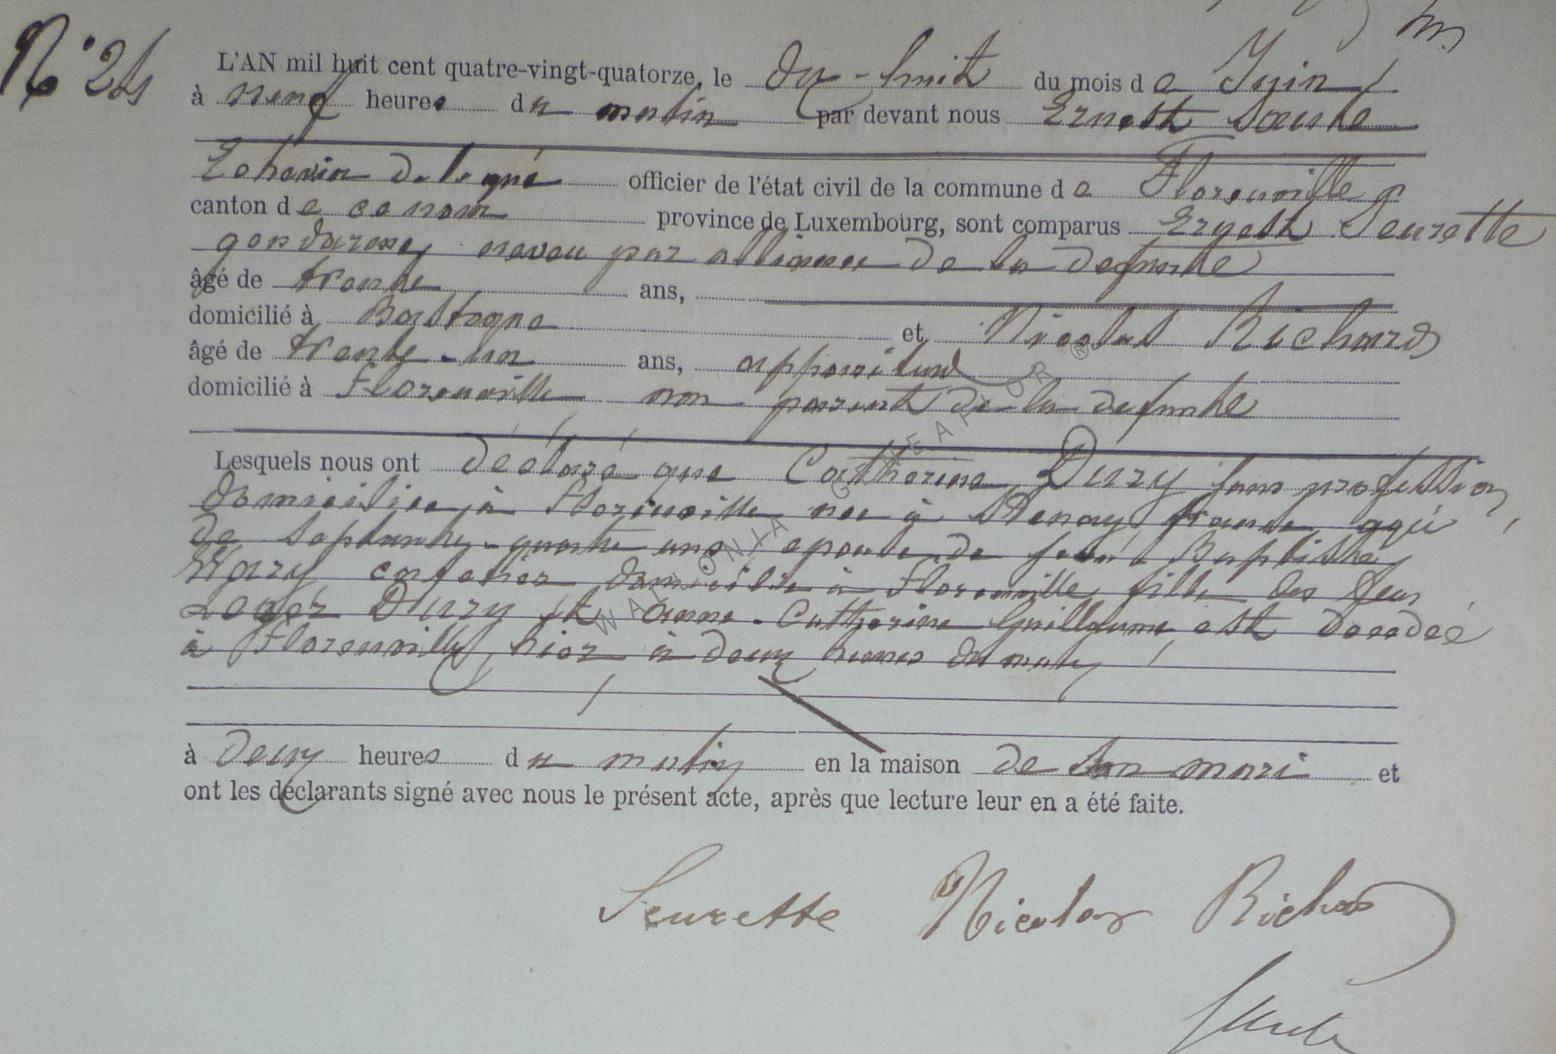 N° 24
L'AN mil huit cent quatre-vingt-quatorze, le dix-huit du mois de Juin
à neuf heures du matin par devant nous Ernest
Echevin délégué officier de l'état civil de la commune de Florenville
canton de ce nom province de Luxembourg, sont comparus Ernest Seurette
gendarme, neveu par alliance de la defunte
âgé de trente ans,
domicilié à Bastogne et Nicolas Richard
âgé de trente-un ans, appariteur
domicilié à Florenville non parent de la defunte
Lesquels nous ont déclaré que Catherine Dury sans profession
domiciliée à Florenville née à Stenay france, agée
de septante-quatre ans epouse de Jean Baptiste
domicilié à Florenville, fille des feus
Dury et Anne-Catherine Guillaume est decedée
à Florenville, hier à deux heures du matin
à deux heures du matin en la maison de son mari et
ont les déclarants signé avec nous le présent acte, après que lecture leur en a été faite.
Seurette Nicolas Richard
WALLONIA GENEAPOR ®